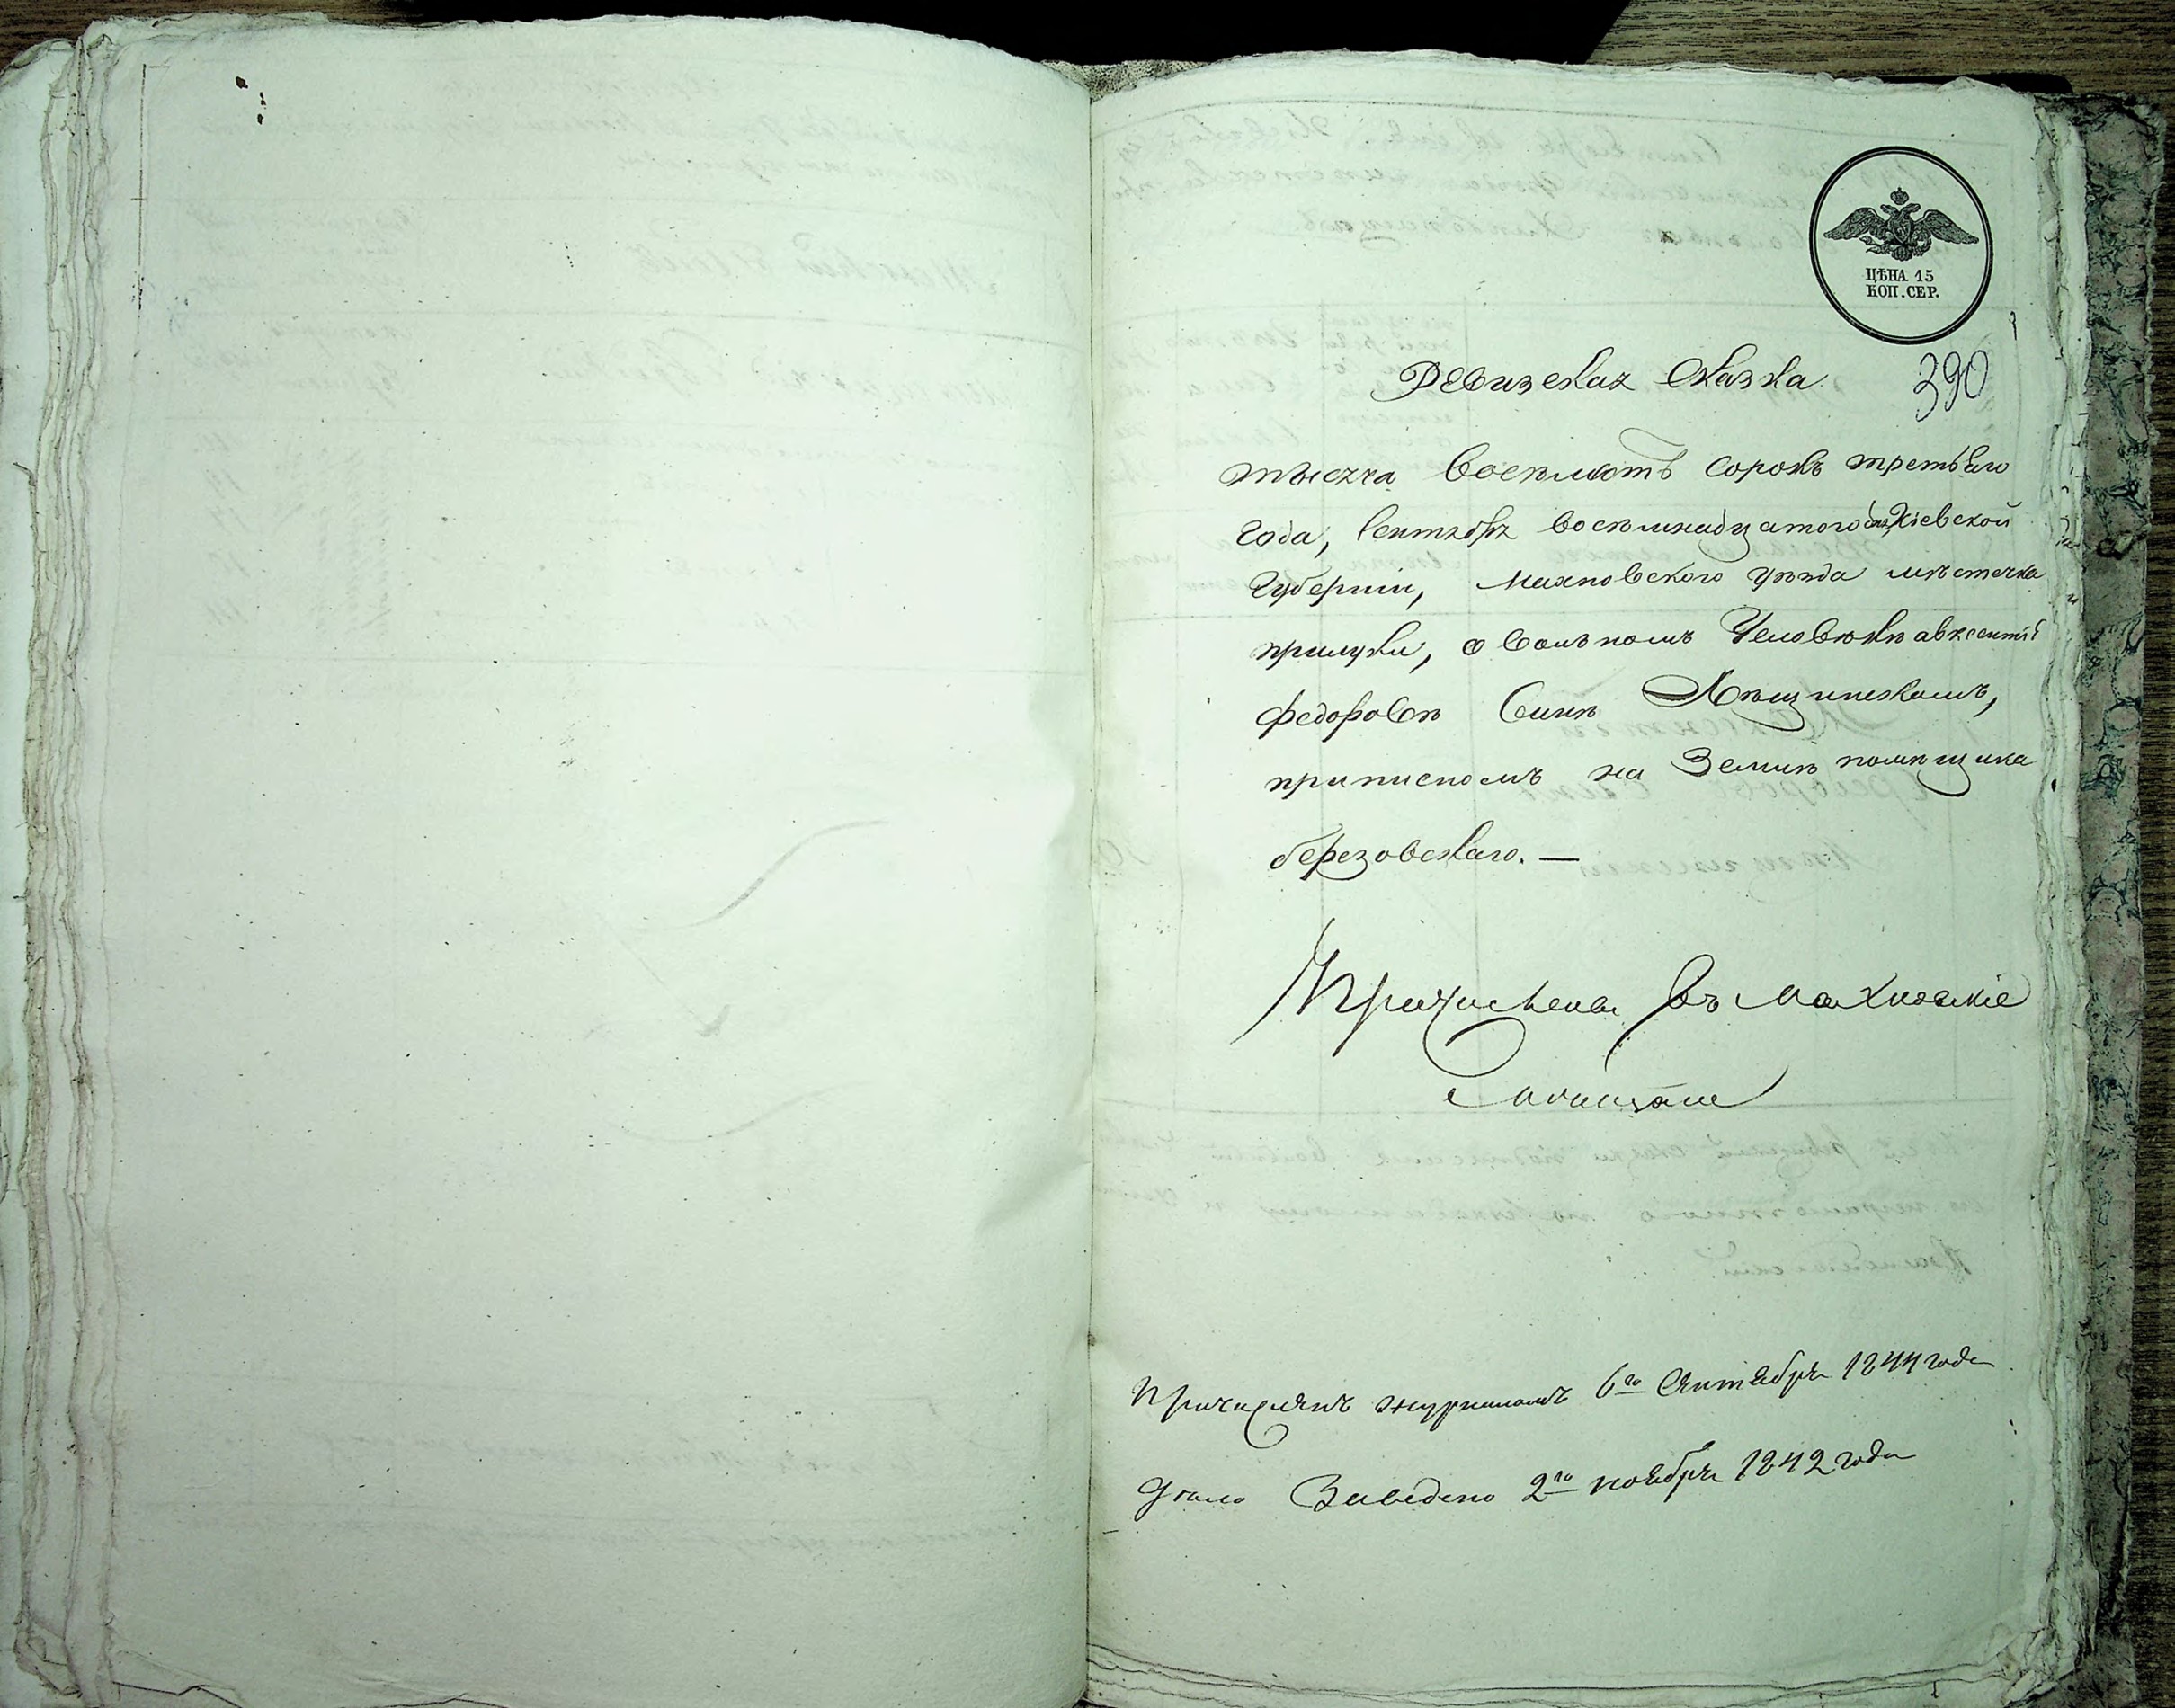 ЦѢНА 15
КОП. СЕР.
390
Ревизская сказка
тысяча восемьсотъ сорокъ третьяго
года, сентября восемнадцатого дня, Кіевской
Губерніи, Махновского уѣзда мѣстечка
прилуки, о вольномъ Человѣкѣ авксентій
федоровѣ Синѣ Лѣщинскомъ,
приписномъ на Землѣ помѣщика
березовскаго. —
Причисленъ въ Махновскіе
Причисленъ журналомъ 6го Сентября 1844 года
Дѣло Заведено 2го ноября 1842 года